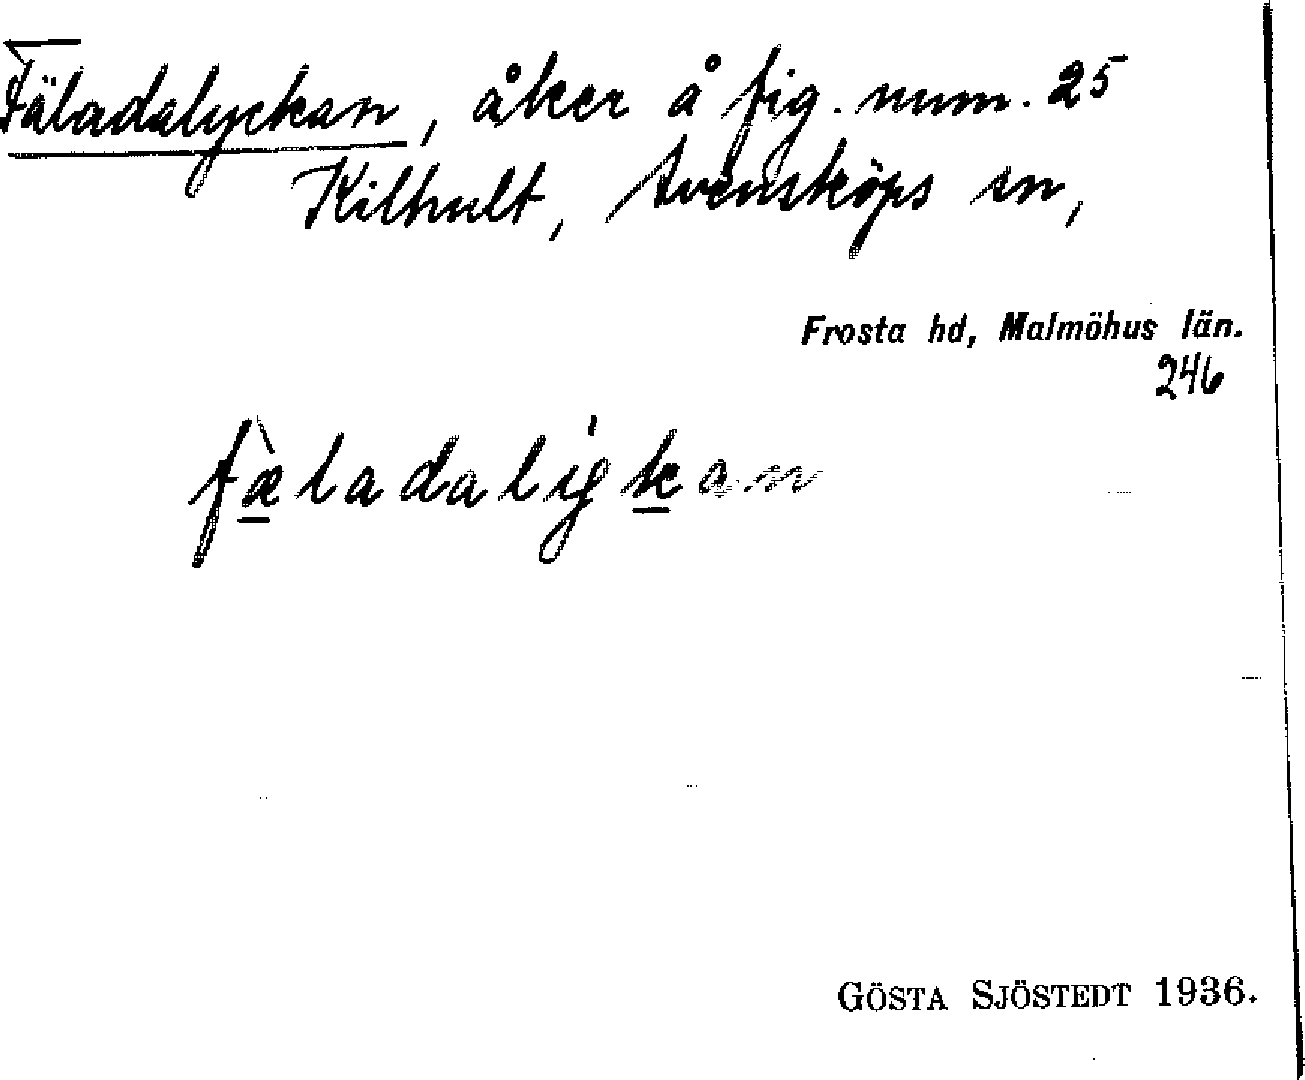 Fäladalyckan, åker å fig. num. 25
Kilhult, Svensköps sn,
Frosta hd, Malmöhus län.
246
fæ̀ladalykan
GÖSTA SJÖSTEDT 1936.